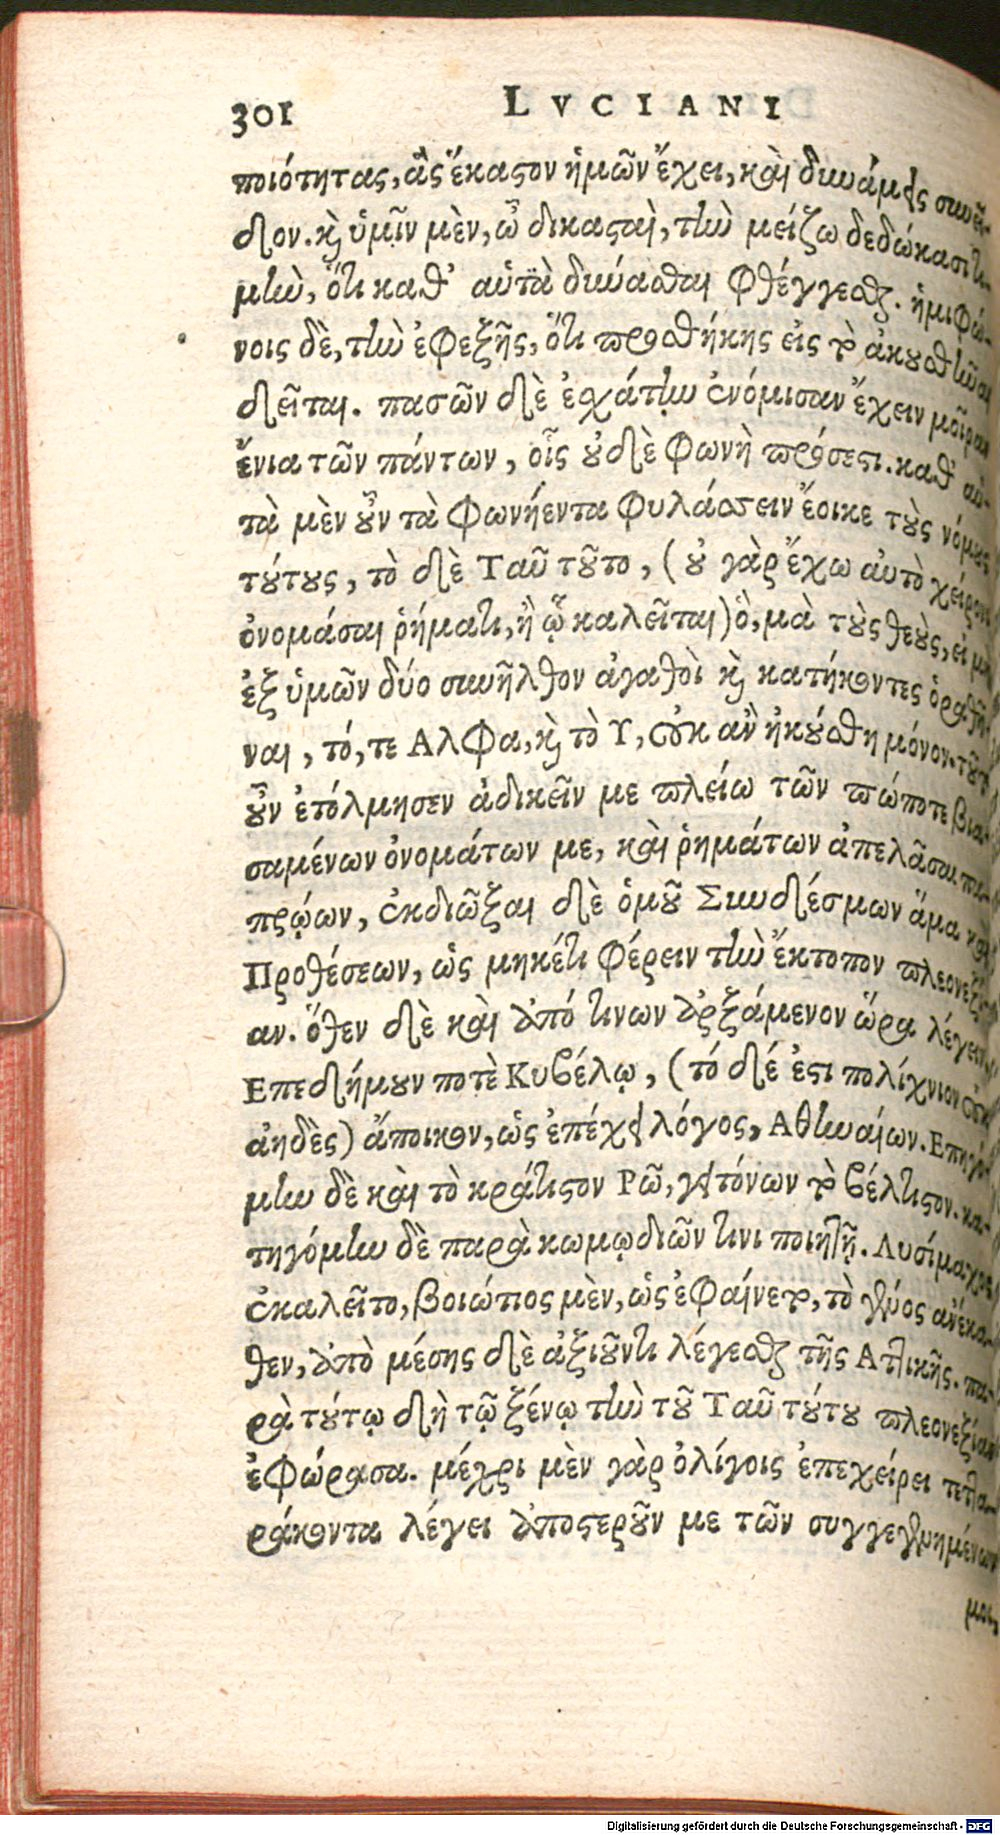 301 LVCIANI
ποιότητας, ἃς ἕκαστον ἡμῶν ἔχει, καὶ δυνάμεις συνεῖ-
δον. καὶ ὑμῖν μὲν, ὦ δικασταὶ, τὴν μείζω δεδώκασι τι-
μὴν, ὅτι καθ' αὑτὰ δύνασθαι φθέγγεσθαι. ἡμιφώ-
νοις δὲ, τὴν ἐφεξῆς, ὅτι προσθήκης εἰς τὸ ἀκουσθῆναι
δεῖται. πασῶν δὲ ἐσχάτην ἐνόμισαν ἔχειν μοῖραν
ἔνια τῶν πάντων, οἷς οὐδὲ φωνὴ πρόσεστι. καθ' αὑ-
τὰ μὲν οὖν τὰ φωνήεντα φυλάσσειν ἔοικε τοὺς νόμους
τούτους, τὸ δὲ Ταῦ τοῦτο, (οὐ γὰρ ἔχω αὐτὸ χείρονι
ὀνομάσαι ῥήματι, ἢ ᾧ καλεῖται) ὃ, μὰ τοὺς θεοὺς, εἰ μὴ
ἐξ ὑμῶν δύο συνῆλθον ἀγαθοὶ καὶ κατήκοντες ὁραθῆ-
ναι, τό, τε Αλφα, καὶ τὸ Υ, οὐκ ἂν ἠκούσθη μόνον. τοῦτο
οὖν ἐτόλμησεν ἀδικεῖν με πλείω τῶν πώποτε βια-
σαμένων ὀνομάτων με, καὶ ῥημάτων ἀπελᾶσαι πα-
τρῴων, ἐκδιῶξαι δὲ ὁμοῦ Συνδέσμων ἅμα καὶ
Προθέσεων, ὡς μηκέτι φέρειν τὴν ἔκτοπον πλεονεξί-
αν. ὅθεν δὲ καὶ ἀπό τινων ἀρξάμενον ὥρα λέγειν.
Επεδήμουν ποτὲ Κυβέλῳ, (τό δέ ἐστι πολίχνιον οὐκ
ἀηδὲς) ἄποικον, ὡς ἐπέχει λόγος, Αθηναίων. Επηγό-
μην δὲ καὶ τὸ κράτιστον Ρῶ, γειτόνων τὸ βέλτιστον. κα-
τηγόμην δὲ παρὰ κωμῳδιῶν τινι ποιητῇ. Λυσίμαχος
ἐκαλεῖτο, βοιώτιος μὲν, ὡς ἐφαίνετο, τὸ γένος ἀνέκα-
θεν, ἀπὸ μέσης δὲ ἀξιοῦντι λέγεσθαι τῆς Αττικῆς. πα-
ρὰ τούτῳ δὴ τῷ ξένῳ τὴν τοῦ Ταῦ τούτου πλεονεξίαν
ἐφώρασα. μέχρι μὲν γὰρ ὀλίγοις ἐπεχείρει τετλα-
ράκοντα λέγει ἀποστεροῦν με τῶν συγγεγενημένων
μοι,
Digitalisierung gefördert durch die Deutsche Forschungsgemeinschaft - DFG